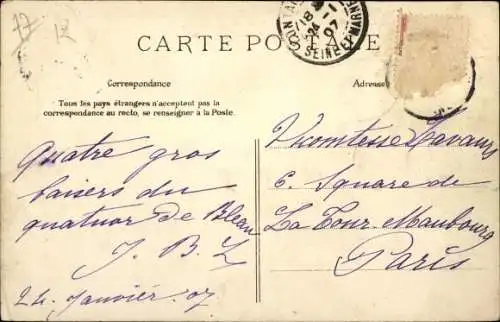 CARTE POSTALE
18
24 -1
07
SEINE ET MARNE
Correspondance
Adresse
Tous les pays étrangers n'acceptent pas la
correspondance au recto, se renseigner à la Poste.
Quatre gros
baisers du
quatuor de Bleau
J. B. L
24 Janvier 07
Vicomtesse
6. Square de
La Tour-Maubourg
Paris